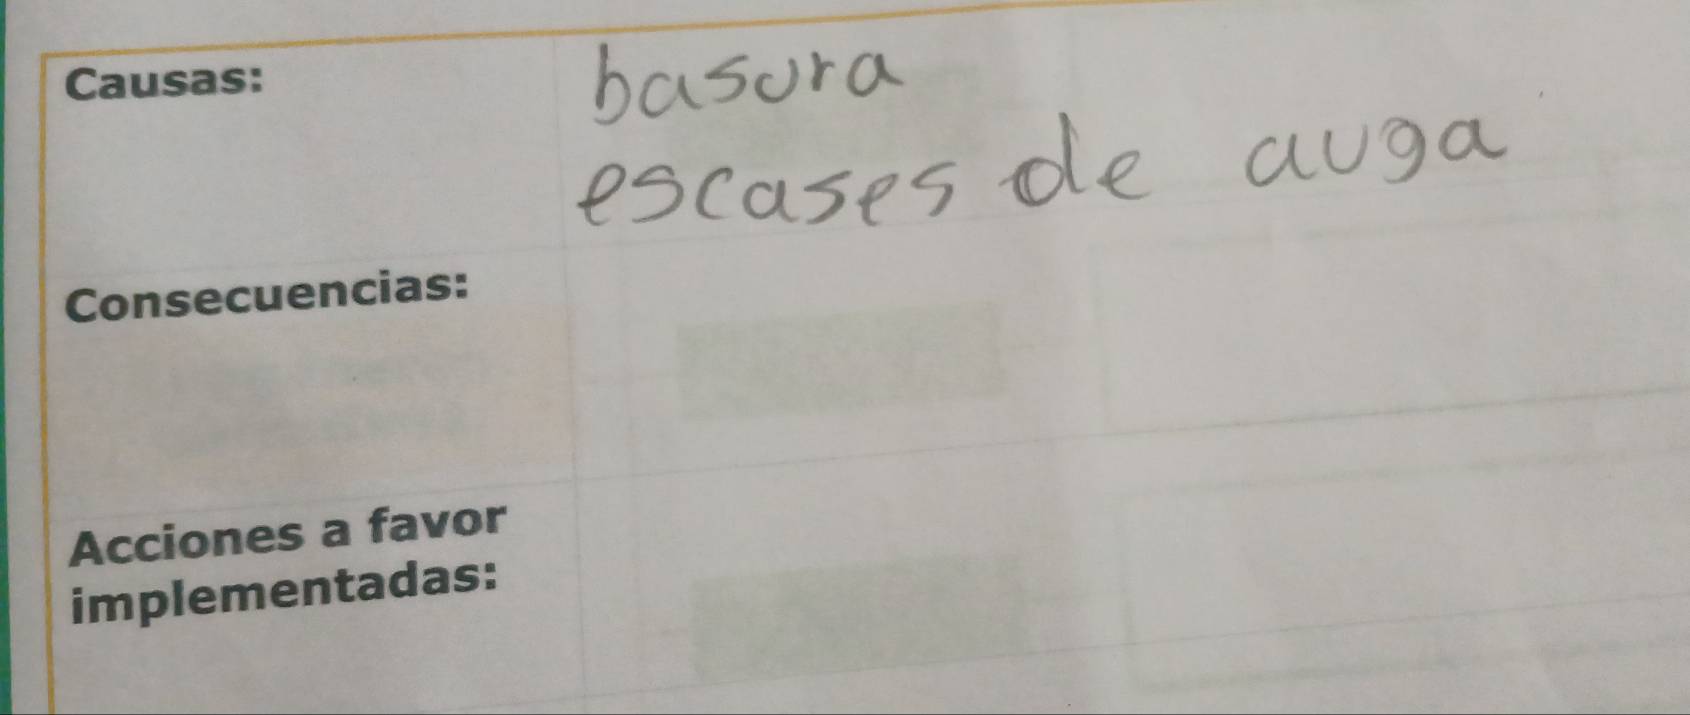 Causas:
basura
escases de auga
Consecuencias:
Acciones a favor
implementadas: